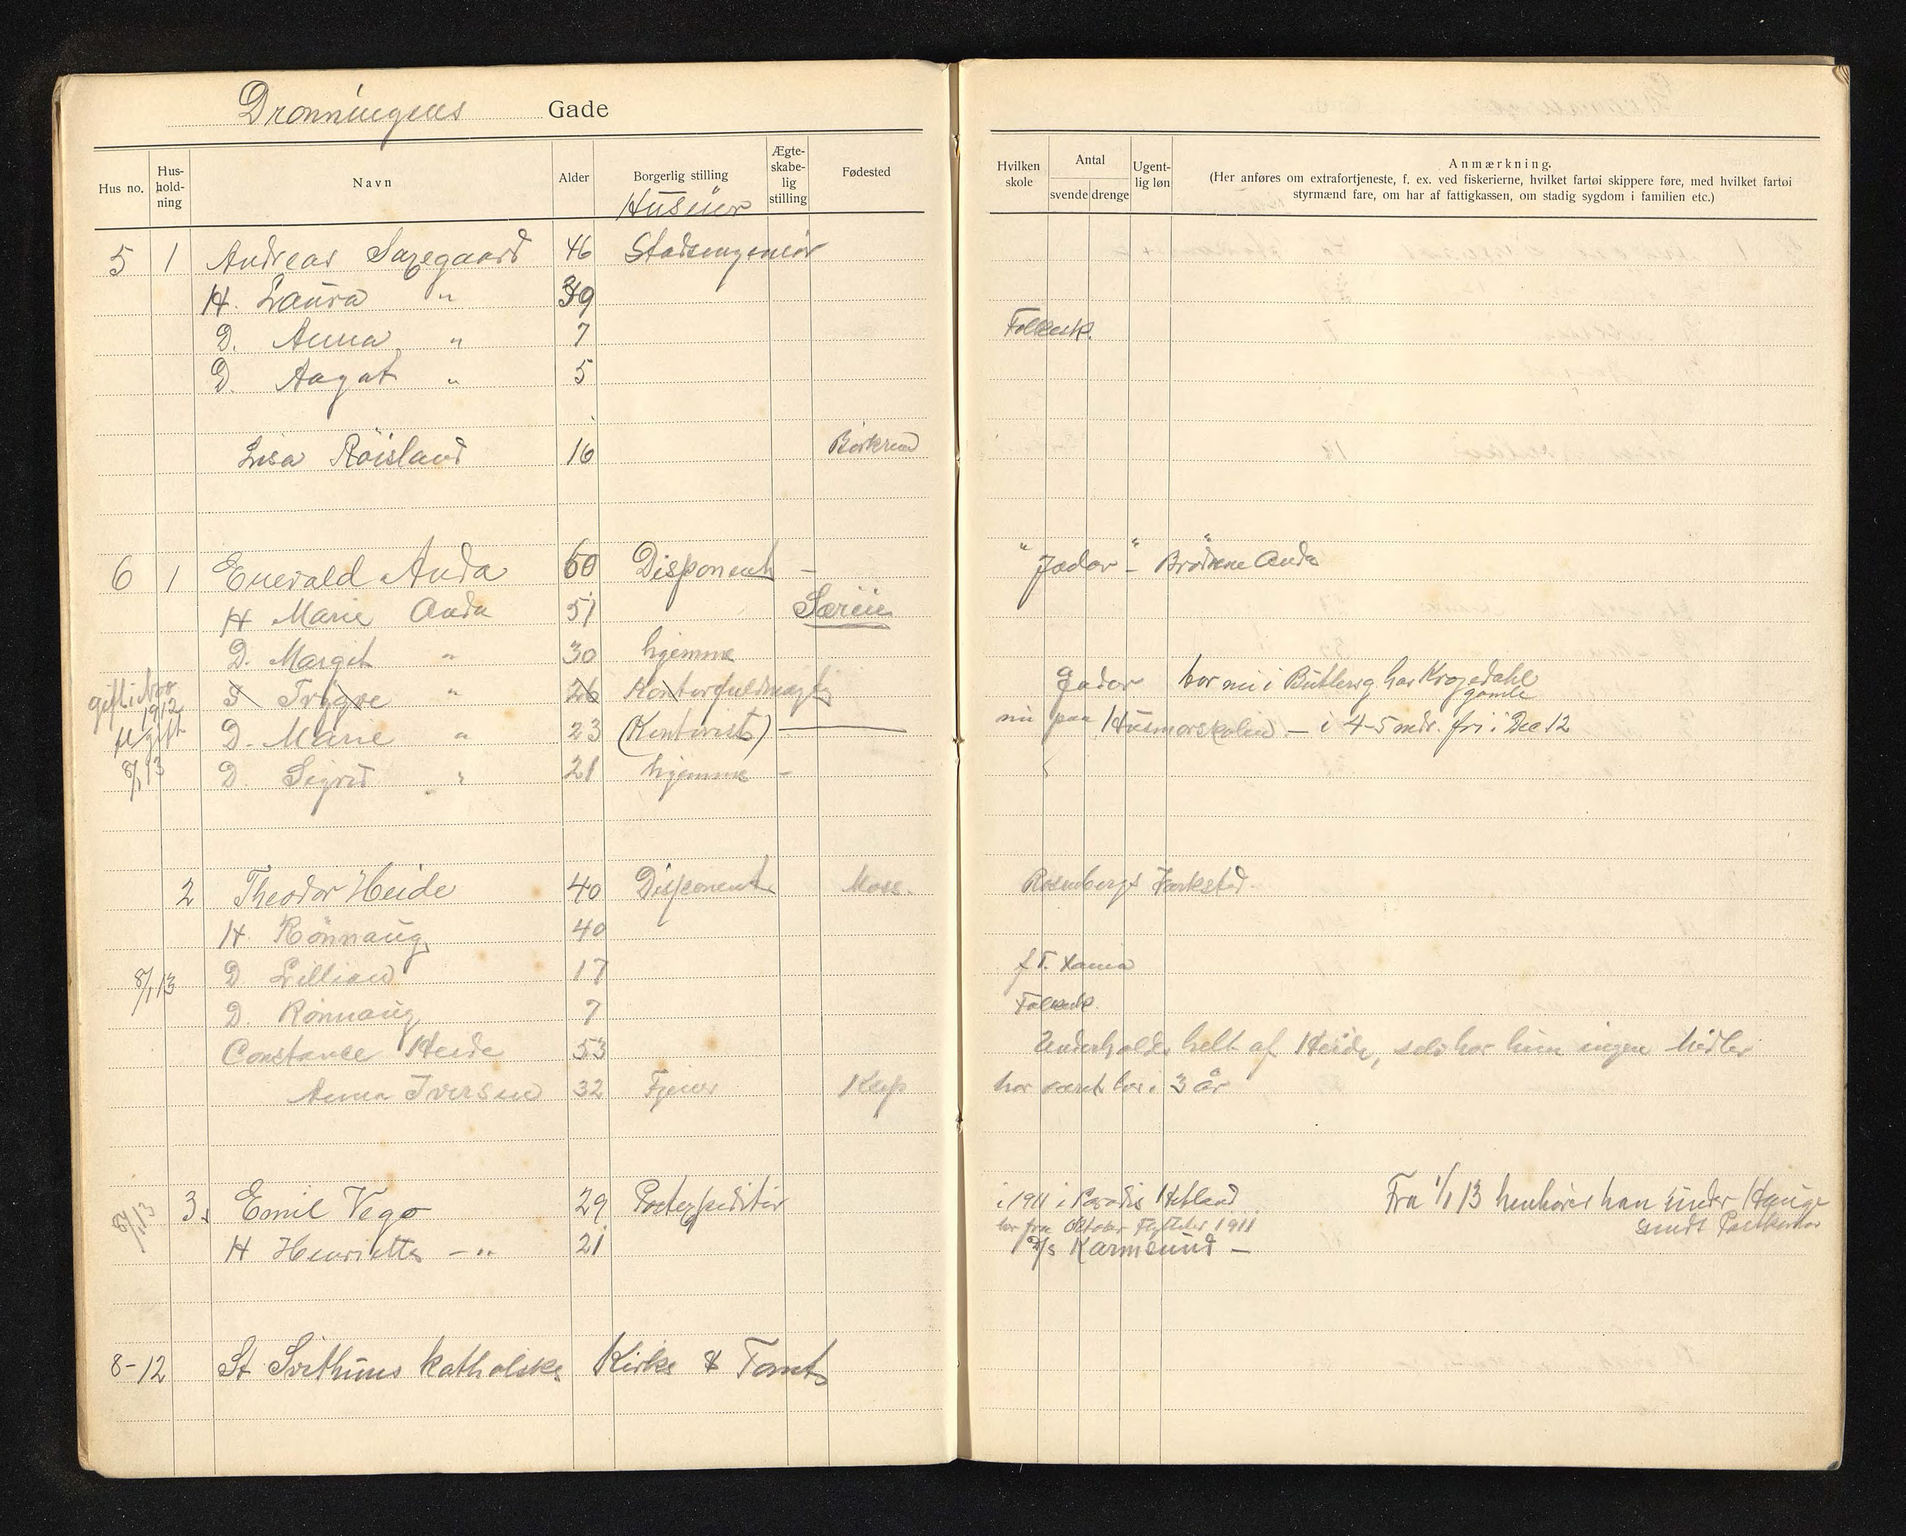 Dronningens Gade
Hus no. Hus-hold-ning Navn Alder Borgerlig stilling Ægte-skabe-lig stilling Fødested Hvilken skole Antal svende drenge Ugent-lig løn Anmærkning.
(Her anføres om extrafortjeneste, f. ex. ved fiskerierne, hvilket fartøi skippere føre, med hvilket fartøi
styrmænd fare, om har af fattigkassen, om stadig sygdom i familien etc.)
Huseier
5 1 Andreas Saxegaard 46 Stadsingeniør
H. Laura " 39
D. Anna " 7 Folkesk.
D. Aagot " 5
Lisa Röisland 16 Birkrem
6 1 Enevald Anda 60 Disponent - "Jædar" - Brödrene Anda
H Marie Anda 51 Særeie
D. Margit " 30 hjemme
gift i Nov 1912 S Trygve " 26 Kontorfuldmægtig Jadar bor nu i Butterg. hos Krogedahl gamle
D. Marie " 23 (Kontorist) nu paa Husmorskolen - i 4-5 mdr. fri i Dec 12
8/1 13 D. Sigrid " 21 hjemme -
2 Theodor Heide 40 Disponent Moss. Rosenbergs Værksted
H. Rönnaug 40
8/1 13 D Lillian 17 f.T. Xania
D. Rönnaug 7 Folkesk.
Constance Heide 53 Underholdes helt af Heide, selv har hun ingen Midler
Anna Iversen 32 Tjener Klep har været her i 3 år
8/1 13 3. Emil Vego 29 Postexpeditör i 1911 i Paradis Hetland Fra 1/1 13 henhörer han under Haugesunds Postkontor
her fra Oktober Flyttetid 1911
H Henriette - " 21 D/s Karmsund -
8-12 St. Svithuns katholske Kirke & Tomt